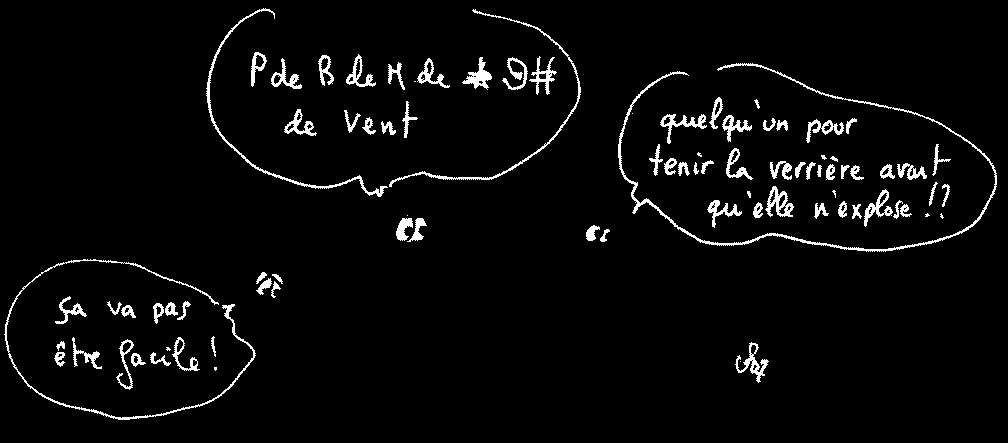 P de B de M de *9#
de vent
quelqu'un pour
tenir la verrière avant
qu'elle n'explose !?
ça va pas
être facile !